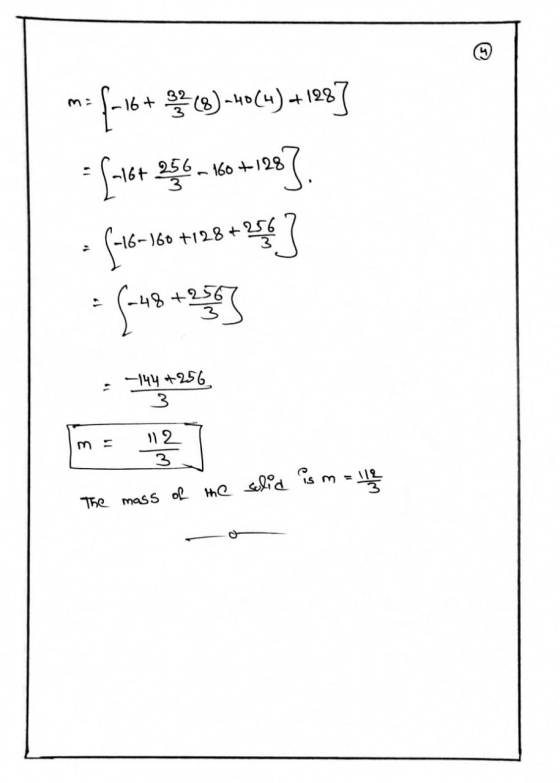 4
m = [-16 + 32/3 (8) - 40(4) + 128]
= [-16 + 256/3 - 160 + 128].
= [-16 - 160 + 128 + 256/3]
= [-48 + 256/3]
= -144 + 256 / 3
m = 112/3
The mass of the solid is m = 112/3